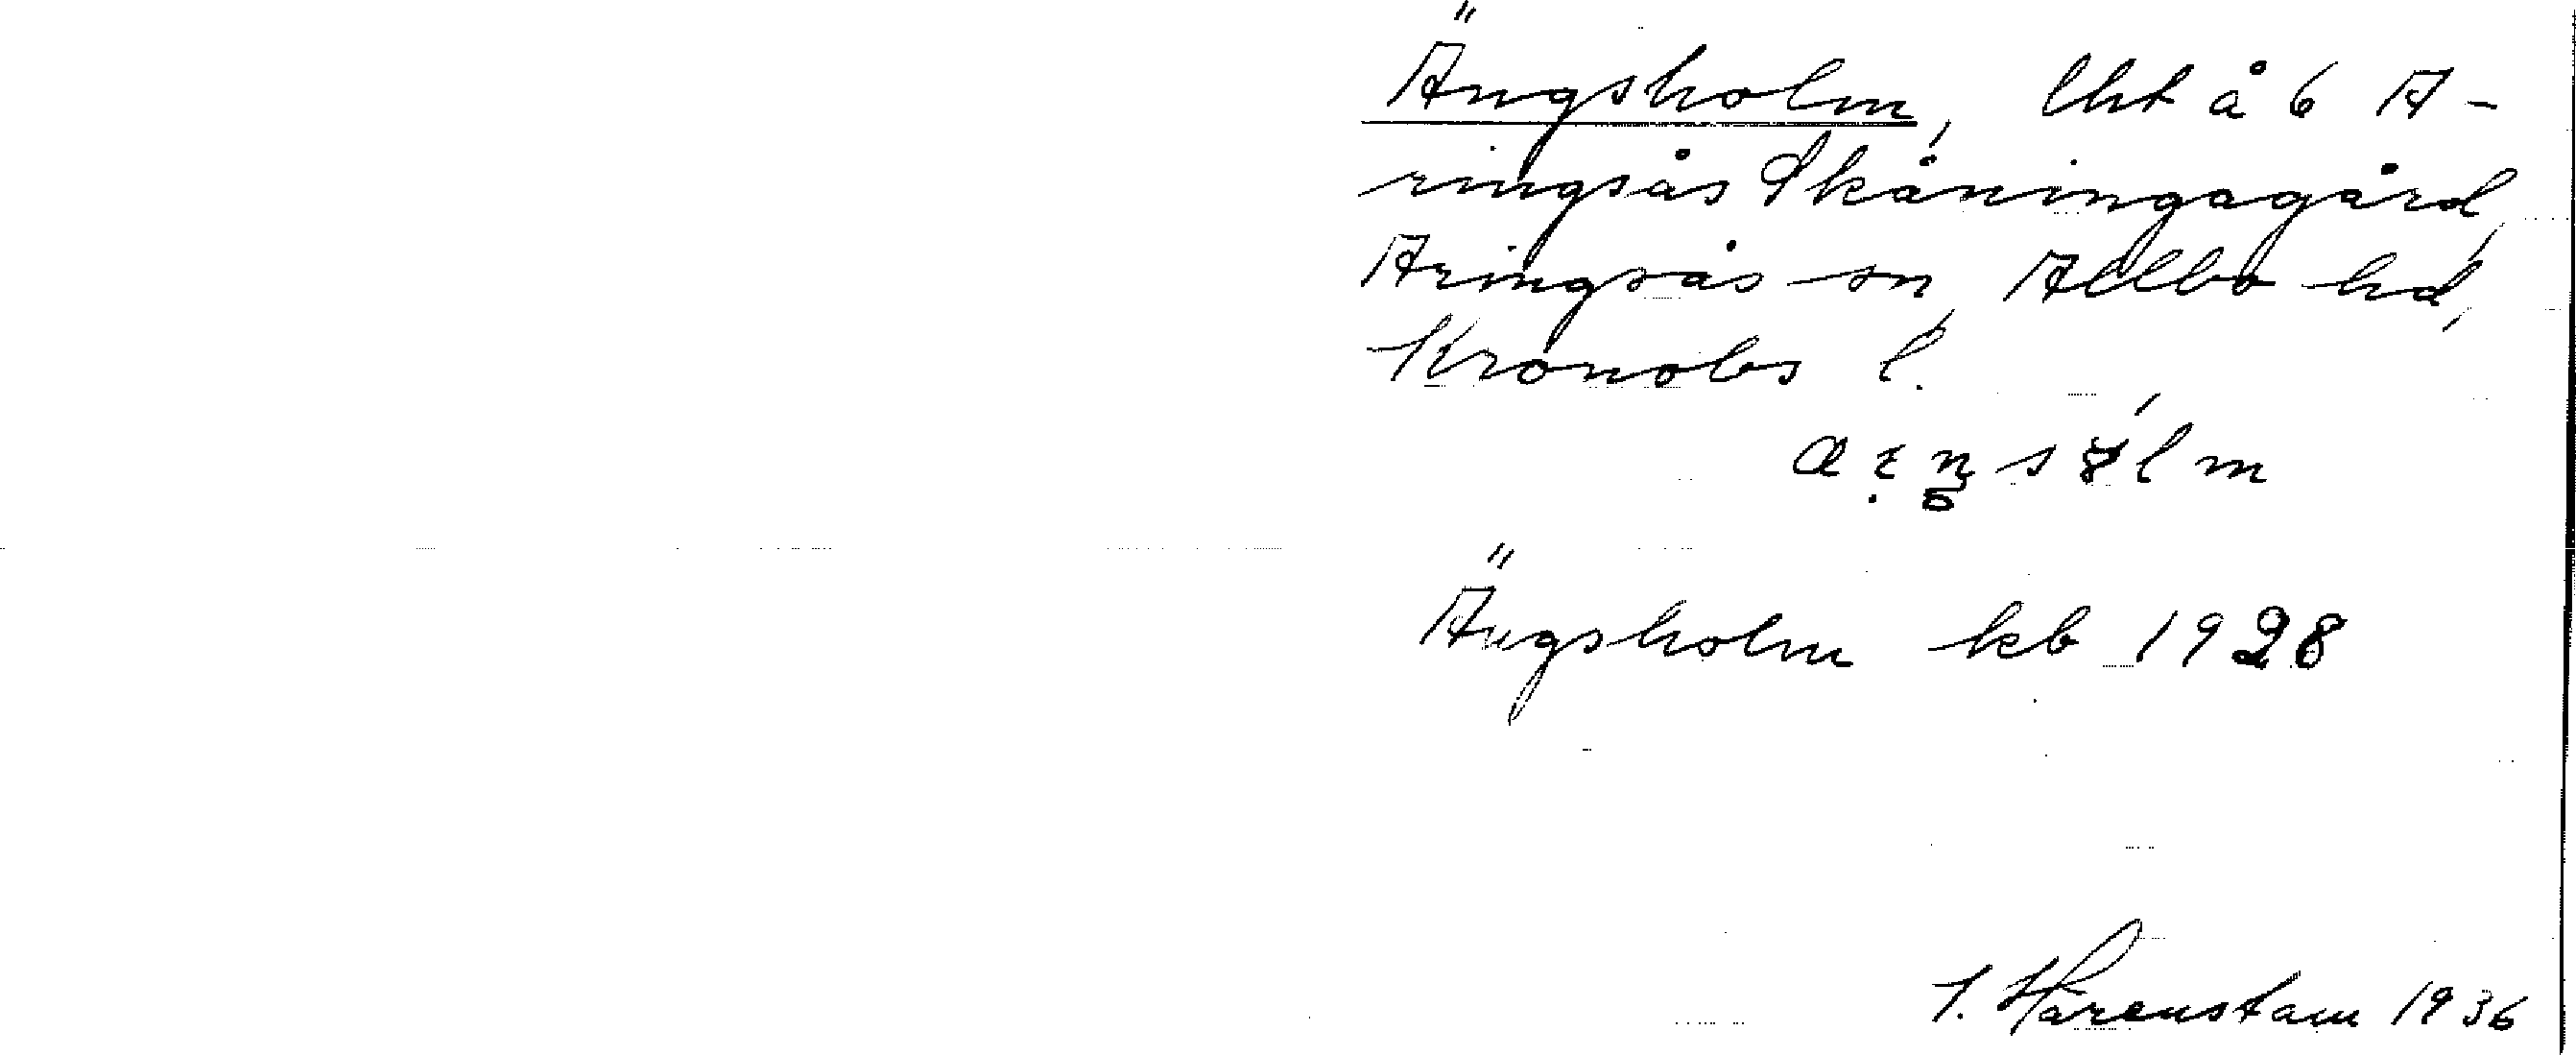 Ängsholm, lht å 6 A-
ringsås Skåningagård,
Aringsås sn, Allbo hd,
Kronobs l.
Ängsholm kb 1928
J. Härenstam 1936